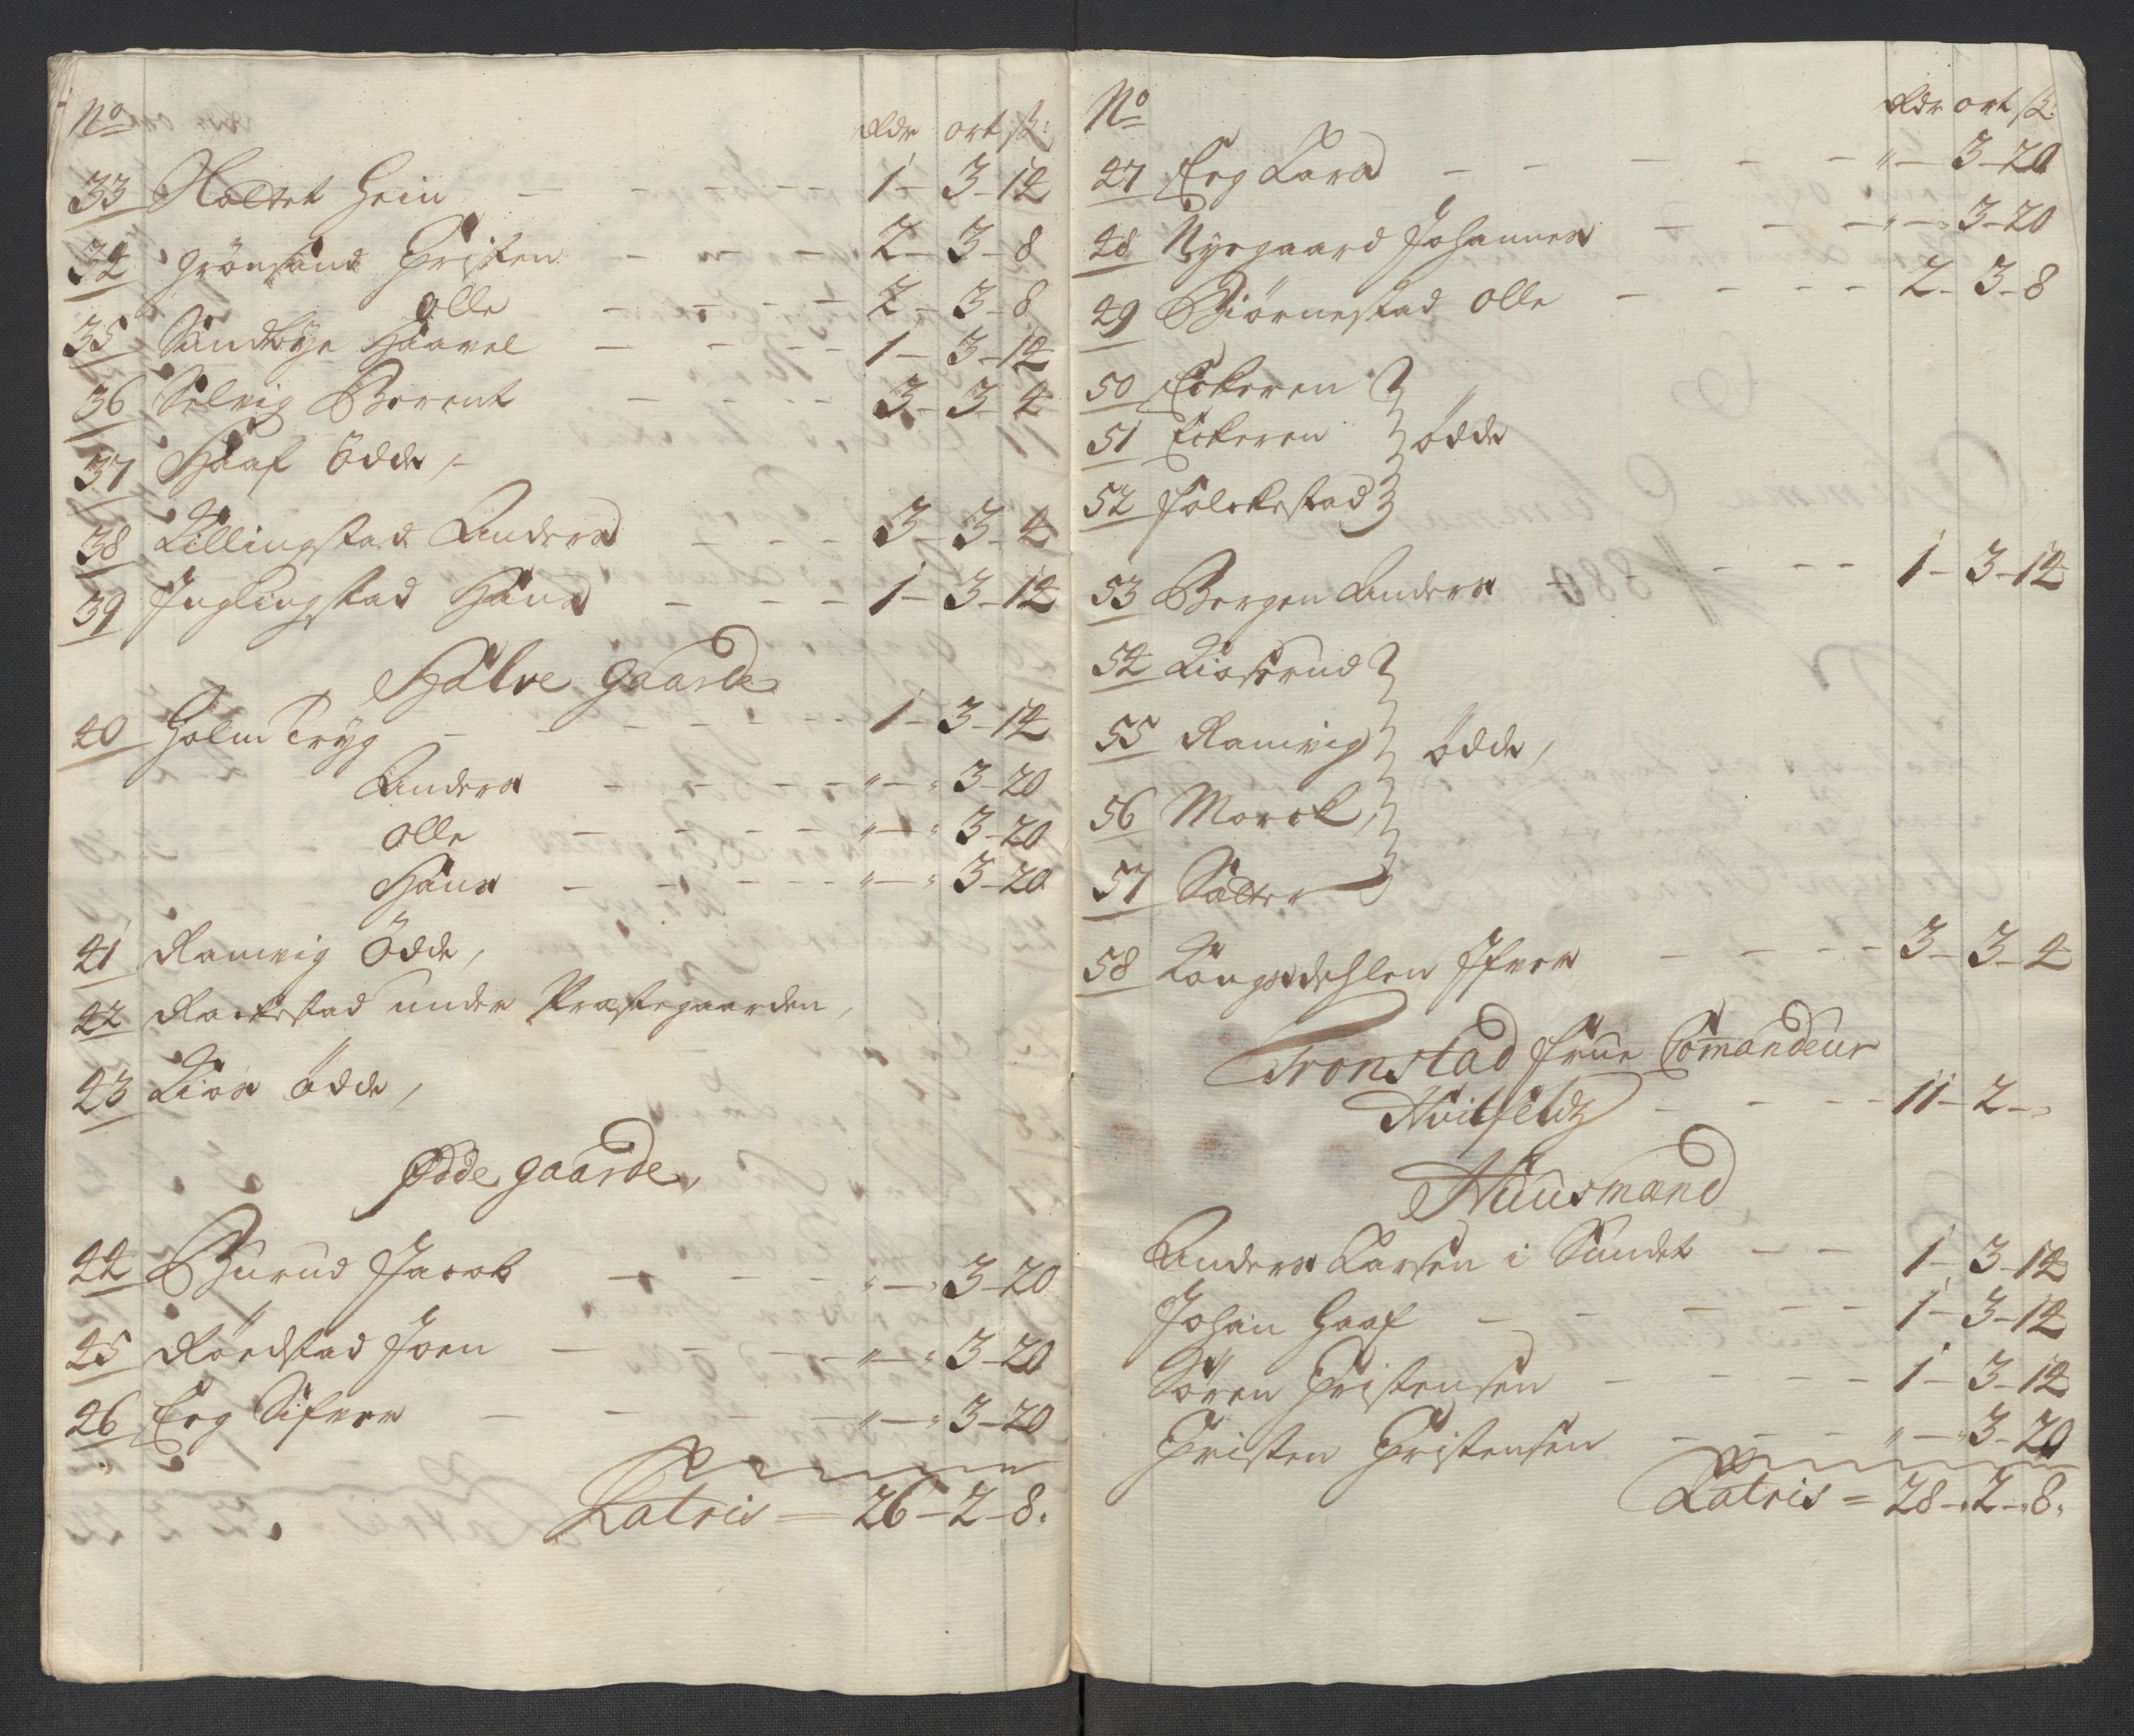 No Rdr ort ß:
33 Holtet Hein - - - - - 1 - 3 - 14
34 Grönsand Christen - - - 2 - 3 - 8
Olle - - - - 2 - 3 - 8
35 Sandbye Haavel - - - - 1 - 3 - 14
36 Solvig Berent - - - - 3 - 3 - 4
37 Haaf Ödde,
38 Killingstad Anders - - - 3 - 3 - 4
39 Inglingstad Hans - - - 1 - 3 - 14
Halve gaarde
40 Holm Tryg - - - - - 1 - 3 - 14
Anders - - - - " - " 3 - 20
Olle - - - - " - " 3 - 20
Hans - - - - " - " 3 - 20
41 Ramvig Ödde,
42 Rackestad under Præstegaarden,
43 Kiös Ödde,
Ødde gaarde,
44 Burud Jacob - - - - " - " 3 - 20
45 Röedstad Joen - - - - " - " 3 - 20
46 Eeg Sifver - - - - " - " 3 - 20
Latris = 26 - 2 - 8.
No Rdr ort ß:
47 Eeg Lars - - - - - " - 3 - 20
48 Nyegaard Johannes - - - " - " 3 - 20
49 Biörnestad Olle - - - - 2 - 3 - 8
50 Eckeren
51 Eckeren Ödde
52 Folckestad
53 Bergen Anders - - - - 1 - 3 - 14
54 Kioserud
55 Ramvig Ödde,
56 Morck,
57 Sætter
58 Kongsdehlen Ifver - - - - 3 - 3 - 4
Tronstad Frue Comandeur
Hvitfeldz - - - 11 - 2 - "
Huusmænd
Anders Larsen i Sundet - - 1 - 3 - 14
Johan Haaf - - - - - 1 - 3 - 14
Sören Christensen - - - - 1 - 3 - 14
Christen Christensen - - - " - " 3 - 20
Latris = 28 - 2 - 8.